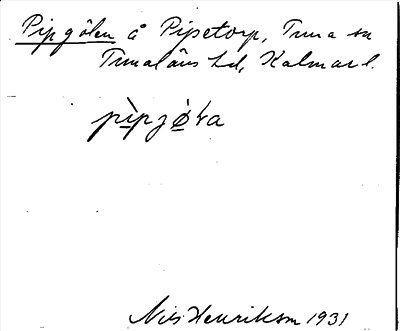 Pipgölen å Pipetorp, Tuna sn
Tunaläns hd, Kalmar l.
pìpgø̀ɭa
Nils Henrikson 1931